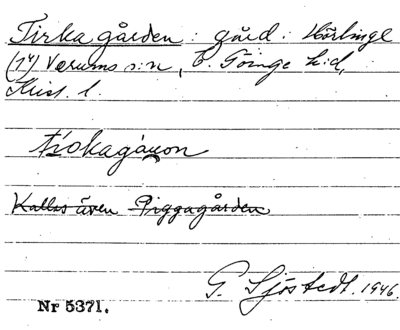 Tirkagården: gård i Hörlinge
(1/4) Verums s:n, V. Göinge h:d,
Krist. l.
tirkagáron
Kallas även Piggagården
G. Sjöstedt. 1946.
Nr 5371.